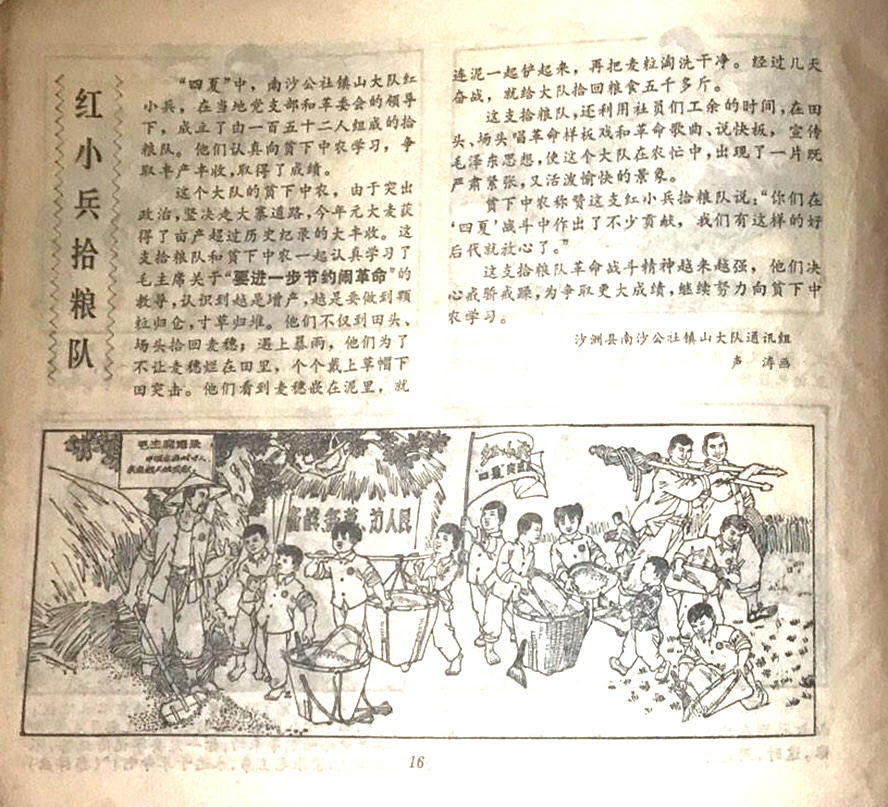 红小兵拾粮队
“四夏”中，南沙公社镇山大队红
小兵，在当地党支部和革委会的领导
下，成立了由一百五十二人组成的拾
粮队。他们认真向贫下中农学习，争
取丰产丰收，取得了成绩。
这个大队的贫下中农，由于突出
政治，坚决走大寨道路，今年元大麦获
得了亩产超过历史纪录的大丰收。这
支拾粮队和贫下中农一起认真学习了
毛主席关于“要进一步节约闹革命”的
教导，认识到越是增产，越是要做到颗
粒归仓，寸草归堆。他们不仅到田头、
场头拾回麦穗；遇上暴雨，他们为了
不让麦穗烂在田里，个个戴上草帽下
田突击。他们看到麦穗嵌在泥里，就
连泥一起铲起来，再把麦粒淘洗干净。经过几天
奋战，就给大队拾回粮食五千多斤。
这支拾粮队，还利用社员们工余的时间，在田
头、场头唱革命样板戏和革命歌曲、说快板，宣传
毛泽东思想，使这个大队在农忙中，出现了一片既
严肃紧张，又活泼愉快的景象。
贫下中农称赞这支红小兵拾粮队说：“你们在
‘四夏’战斗中作出了不少贡献，我们有这样的好
后代就放心了。”
这支拾粮队革命战斗精神越来越强，他们决
心戒骄戒躁，为争取更大成绩，继续努力向贫下中
农学习。
沙洲县南沙公社镇山大队通讯组
声涛画
毛主席语录
红小兵
四夏
备战、备荒、为人民
16